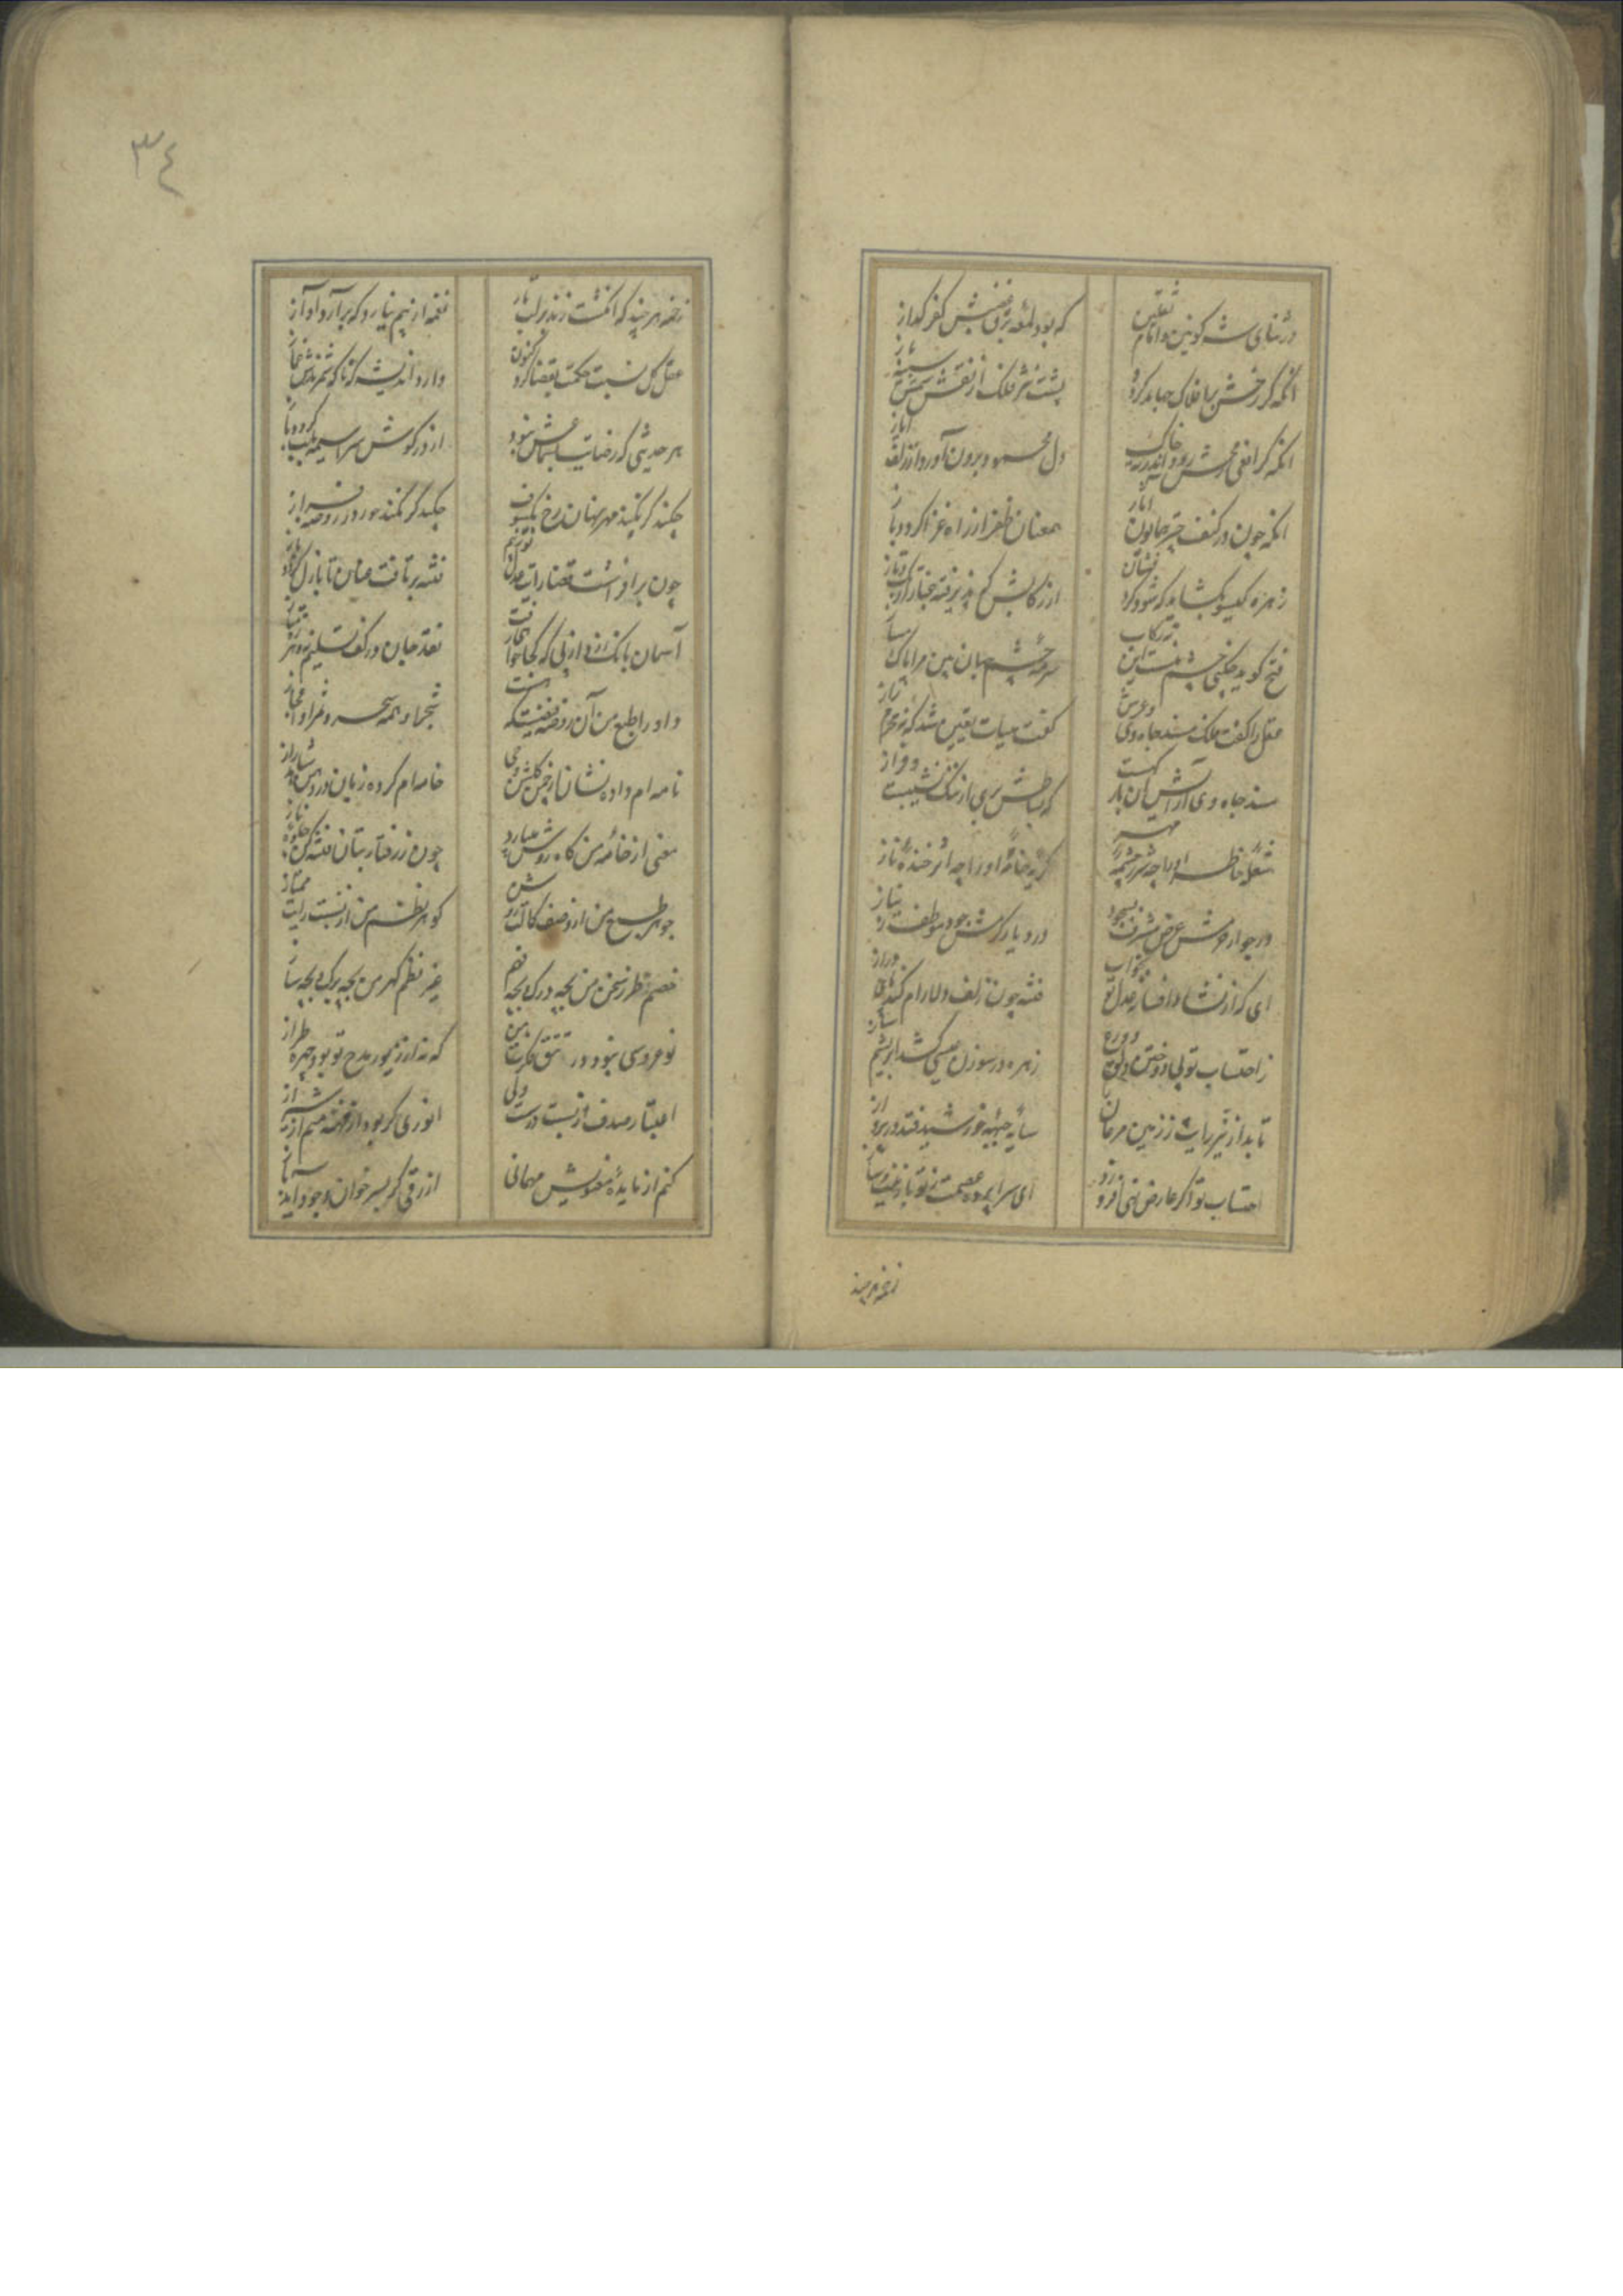 در ثنای شه کونین و امام ثقلین
که بود لمعه برق غضبش کفر کداز
انکه کر رخش بر افلاک جهاند کردد
پشت شیر فلک از نقش سمش سینه باز
انکه کر افعی رمحش رود اندر ته خاک
دل محمود برون آورد از زلف ایاز
انکه چون در کنف چتر همایون آثار
همعنان ظفر از راه غزا کردد باز
زهره کیسو بکشاید که شود کرد فشان
از رکابش
فتح کوید چکنی چشم منست این نه رکاب
سرمه چشم جهان بین مرا پاک مساز
عقل را کفت ملک مسند جاه وی و عرش
کفت هیهات یقین شد که نه محرم راز
مسند جاه وی آرایش آن بار کهست
که بساطش بری از ننک نشیبست و فراز
شعله خاطر او را چه شرر چشمه مهر
کریه خامه او را چه اثر خنده ناز
در جوار حرمش عرض شرف سجود
در دیار کرمش جود موظف نیاز
ای که از نشاه افسانه عدل تو بخواب
فتنه چون زلف دلارام کند پای دراز
ز احتساب تو پی دوختن دلق ورع
زهره در سوزن عیسی کشد ابریشم ساز
تابد از نیر رایت ز زمین مرغان را
سایه جبهه خورشید فتد در پرواز
احتساب تو اکر عارض نهی افروزد
ای سراپرده عصمت ز تو با زینت و ساز
زخمه هر چند
٣٤
زخمه هر چند که انکشت زند بر لب تار
نغمه از بیم نیارد که برآرد آواز
عقل کل نسبت حکمت بقضا کرد کنون
دارد اندیشه
هر حدیثی که رضایت بسماعش نبود
از در کوش سراسیمه بلب کردد باز
چکند کر نکند مهر نهان رخ بکسوف
چکند کر نکند حور در روضه فراز
چون برافراشت قضا رایت عدل تو بهم
فتنه برتافت عنان
آسمان بانک زد از پی که کجا خواهی رفت
نقد جان در کف تسلیم نه و تیز متاز
داورا طبع من آن روضه فیضست که هست
شجر او همه سحر و ثمر او اعجاز
نامه ام داده نشان از چمن کلشن وحی
خامه ام کرده زبان در دهن
معنی از خامه من کاه روش میبارد
چون ز رفتار بتان فتنه کند جلوه ناز
جوهر طبع من از وصف کمالت روشن
کوهر نظم من از نسبت رایت ممتاز
خصم و طرز سخن من بچه درک و بچه فهم
غیر و نظم کهر من بچه برک و بچه ساز
نو عروسی نبود در تتق فکرت من
که نه از زیور مدح تو بود چهره طراز
اعتبار صدف از نسبت درست ولی
انوری کر بود از فخر منم از شیراز
کنم از مایده معنویش مهمانی
ازرقی کر بسر خوان وجود آید باز